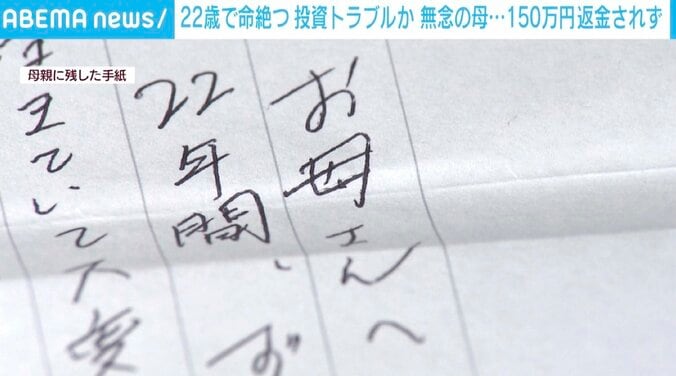 ABEMA news/
22歳で命絶つ 投資トラブルか 無念の母…150万円返金されず
母親に残した手紙
お母さんへ
22年間、ず
きていて大変